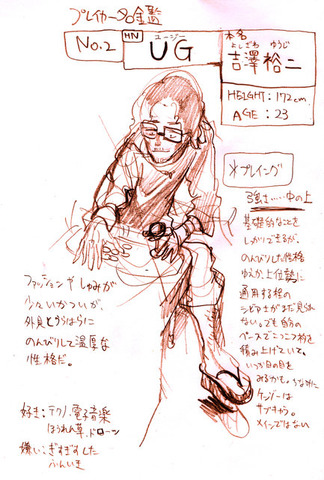 プレイヤー名鑑
No.2
HN
ユージー
UG
本名
よしざわ ゆうじ
吉澤裕二
HEIGHT:172cm
AGE:23
*プレイング
強さ……中の上
基礎的なことを
しっかりできるが、
のんびりした性格
ゆえか、上位勢に
通用する程の
シビアさがまだ見られ
ない。でも自分の
ペースでコツコツ
積み上げていて、
いつか日の目を
みるかも。
ケンジーは
サブキャラ。
メインではない
ファッションやしゅみが
少々いかついが、
外見とうらはらに
のんびりして温厚な
性格だ。
好き:テクノ、電子音楽
ほうれん草、ドローン
嫌い:ぎすぎすした
ふんいき